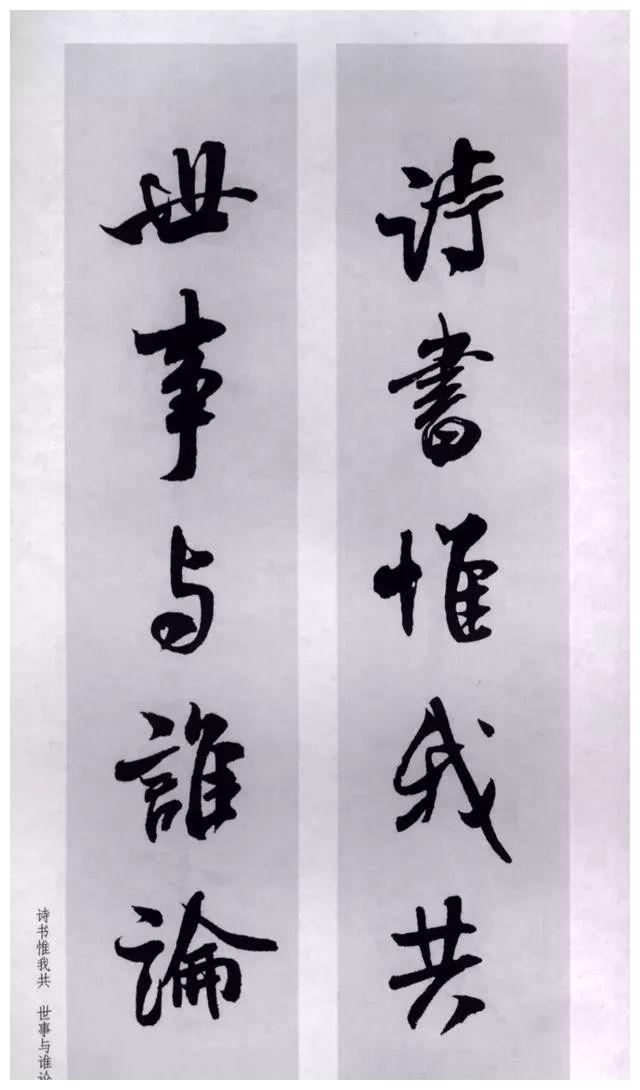 詩書惟我共
世事与誰論
诗书惟我共 世事与谁论